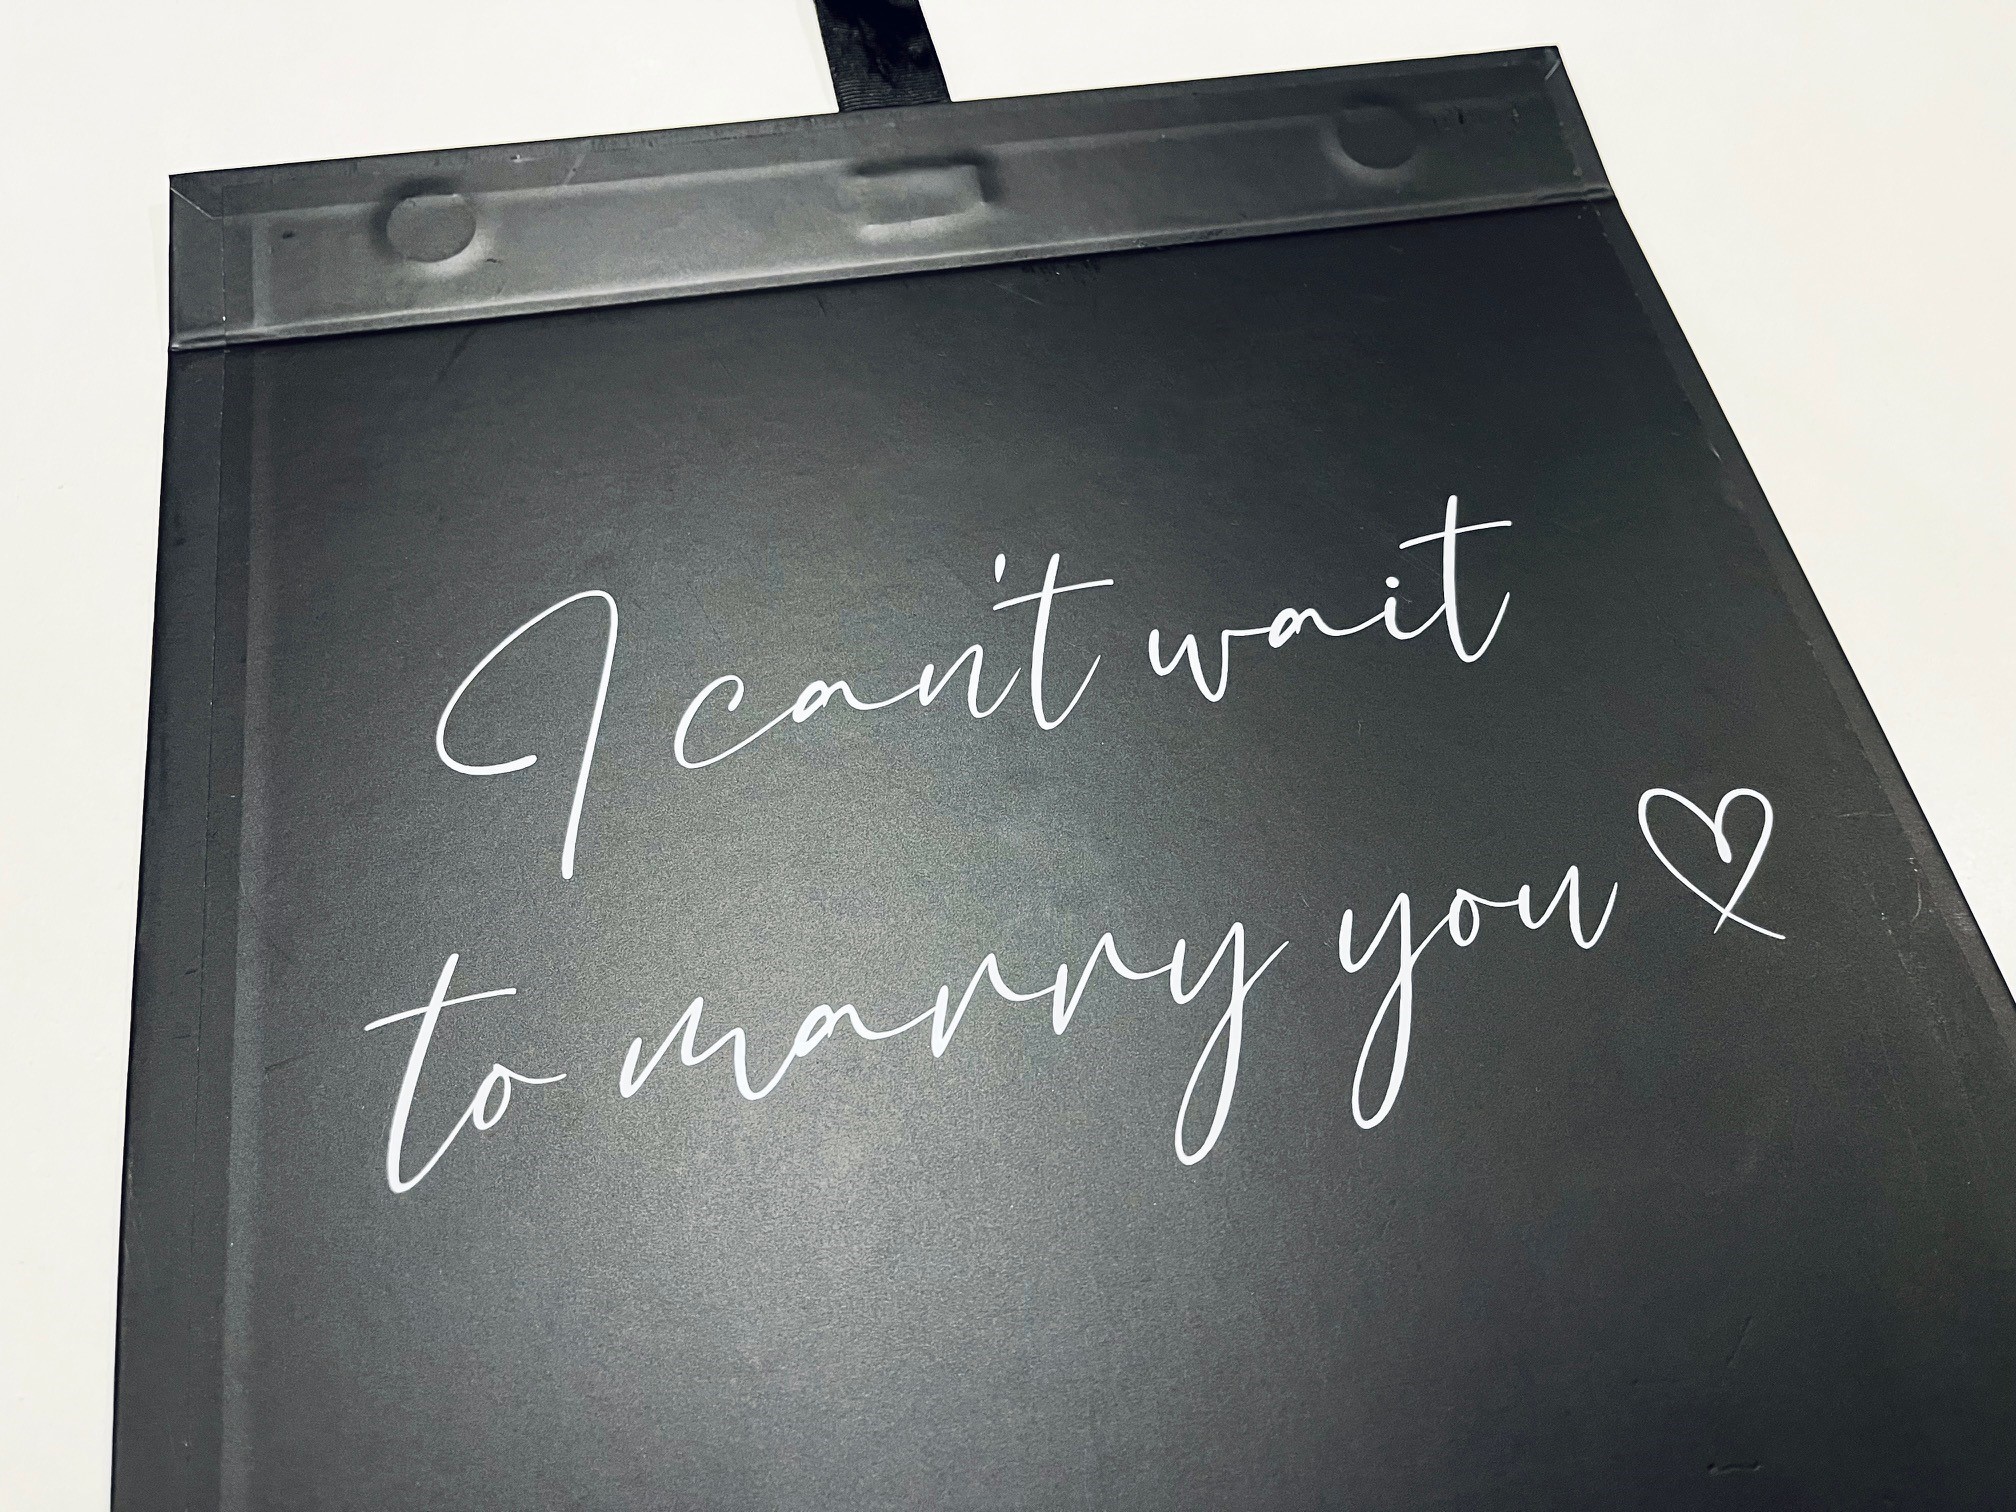 I can't wait
to marry you ♡